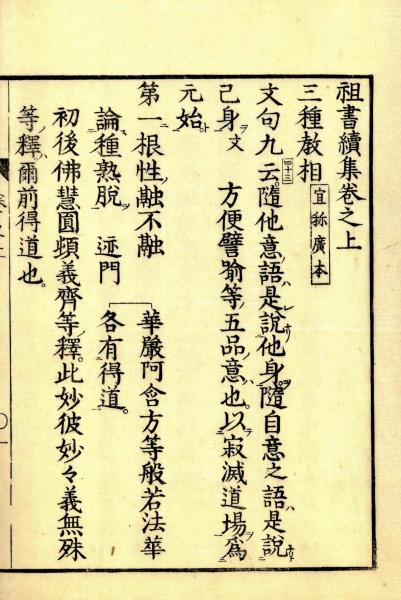 祖書續集卷之上
三種教相 宜称廣本
文句九四十三云隨他意ノ語ハ是レ説ク他身ヲ隨自意之語ハ是説
己身ヲ文 方便譬喻等ノ五品ノ意也。以テ寂滅道場ヲ為
元始ト
第一根性ノ融不融 華嚴阿含方等般若法華
論種熟脫ヲ 迹門 各有得道
初後佛慧圓頓義齊等ノ釋。此妙彼妙々義無殊
等ノ釋ハ爾前得道也。